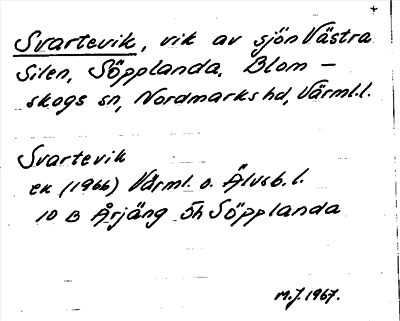 Svartevik, vik av sjön Västra
Silen, Söpplanda, Blom-
skogs sn, Nordmarks hd, Värml.l.
Svartevik
ek (1966) Värml. o. Älvsb. l.
10 B Årjäng 5h Söpplanda
M.J. 1967.